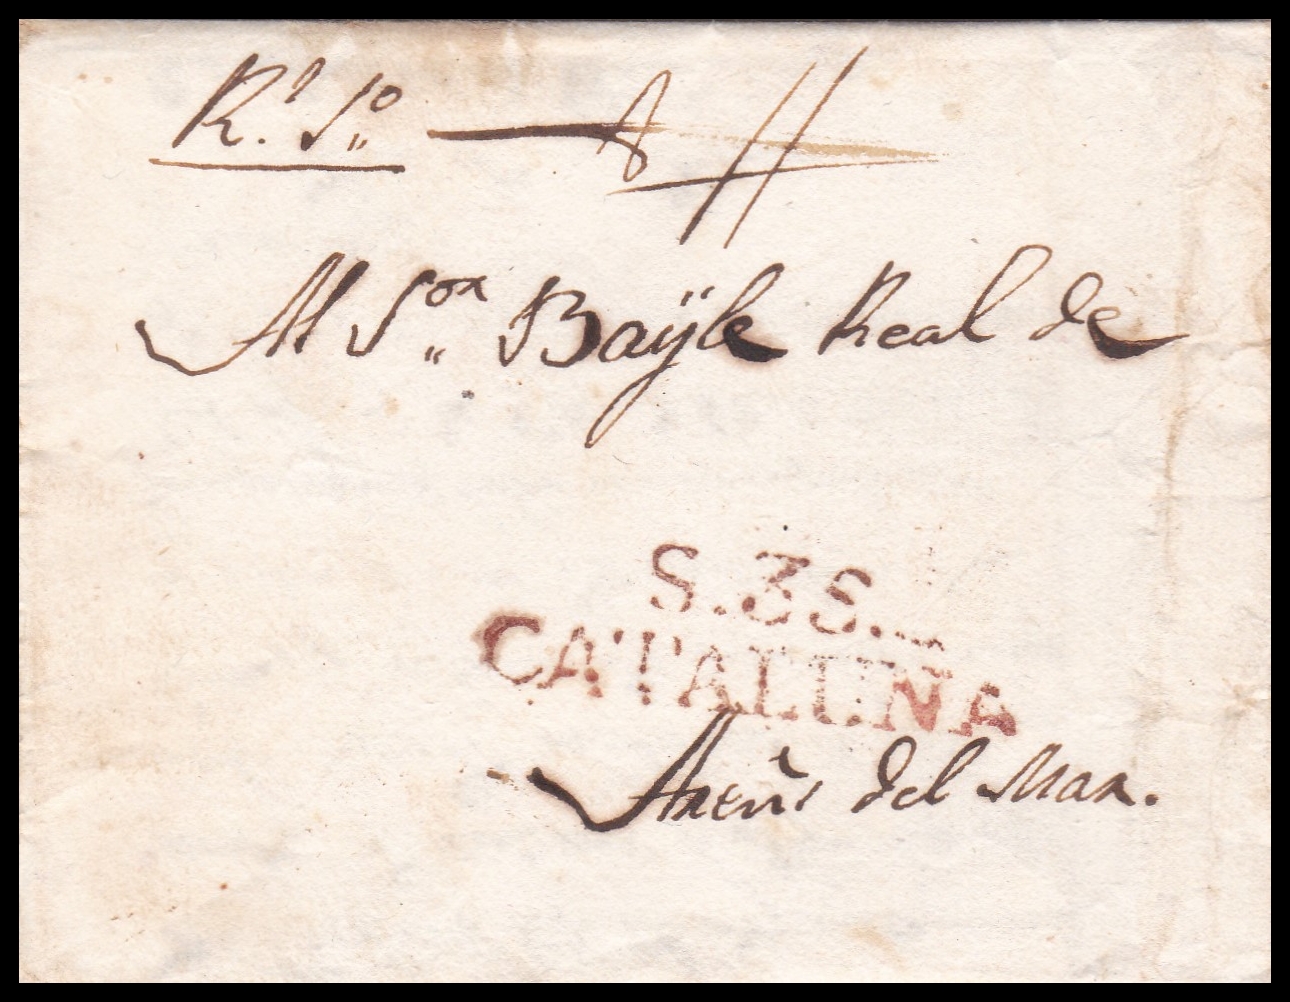 R.l S.o
Al S.or Bayle Real de
S. 3S.
CATALUNA
Areñs del Mar.